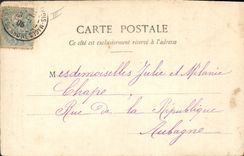 CARTE POSTALE
Ce côté est exclusivement réservé à l'adresse
Mesdemoiselles Julie et Mélanie
Chape
Rue de la République
Aubagne